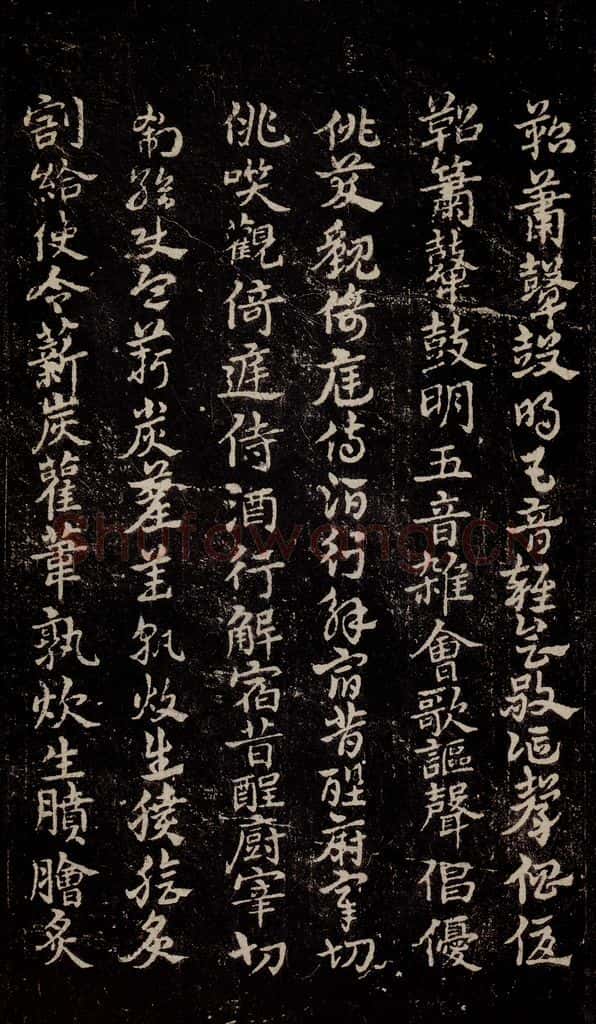 鞀簫鼙鼓明五音雜會歌謳聲倡優
鞀簫鼙鼓明五音雜會歌謳聲倡優
佻咲觀倚庭侍酒行解宿昔醒廚宰切
佻咲觀倚庭侍酒行解宿昔醒廚宰切
割給使令薪炭雚葦孰炊生膹膾炙
割給使令薪炭雚葦孰炊生膹膾炙
Shufawang.CN